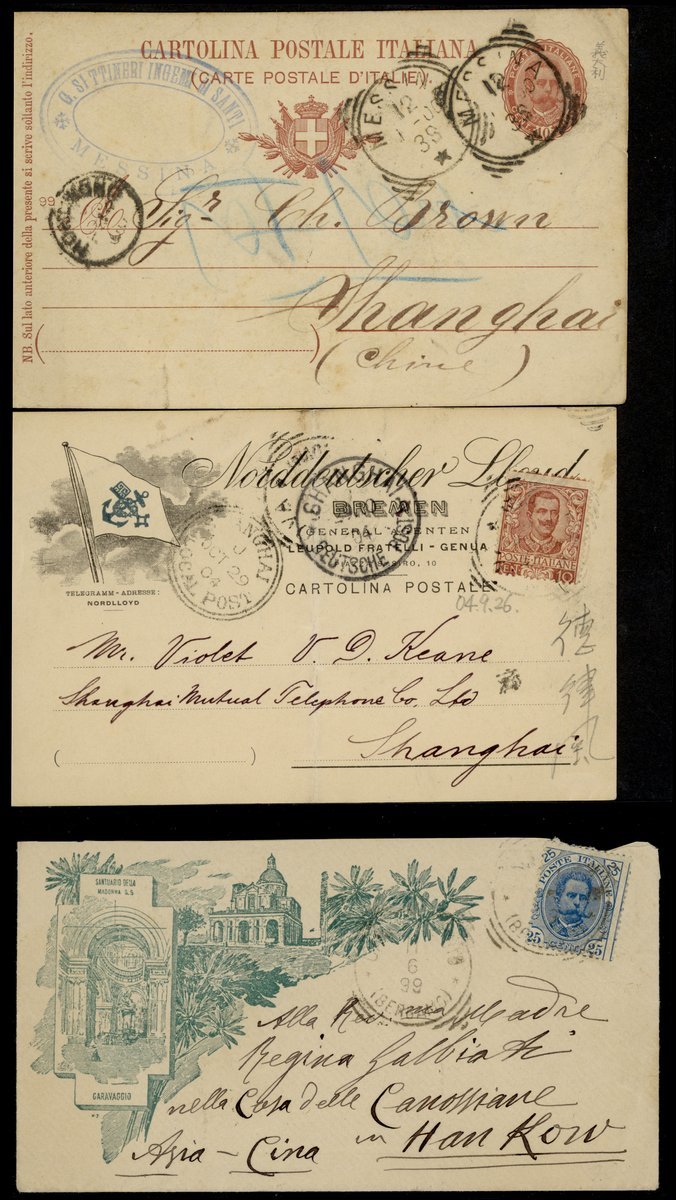 CARTOLINA POSTALE ITALIANA
(CARTE POSTALE D'ITALIE)
NB. Sul lato anteriore della presente si scrive soltanto l'indirizzo.
MESSINA
MESSINA
MESSINA
12
HONG KONG
99
Sigr Ch. Brown
Shanghai
(Chine)
Norddeutscher Lloyd
BREMEN
GENERAL AGENTEN
LEUPOLD FRATELLI - GENUA
CARTOLINA POSTALE
TELEGRAMM-ADRESSE:
NORDLLOYD
SHANGHAI
LOCAL POST
OCT 29
04
SHANGHAI
DEUTSCHE POST
04
POSTE ITALIANE
10
04.9.26.
德律風
Mr. Violet V. D. Keane
Shanghai Mutual Telephone Co. Ltd
Shanghai
SANTUARIO DELLA
MADONNA S.S
CARAVAGGIO
25 25
POSTE ITALIANE
25 25
6
99
(BERGAMO)
Alla Rev ma Madre
Regina Galbiati
nella Casa delle Canossiane
in Han Kow
Asia - Cina